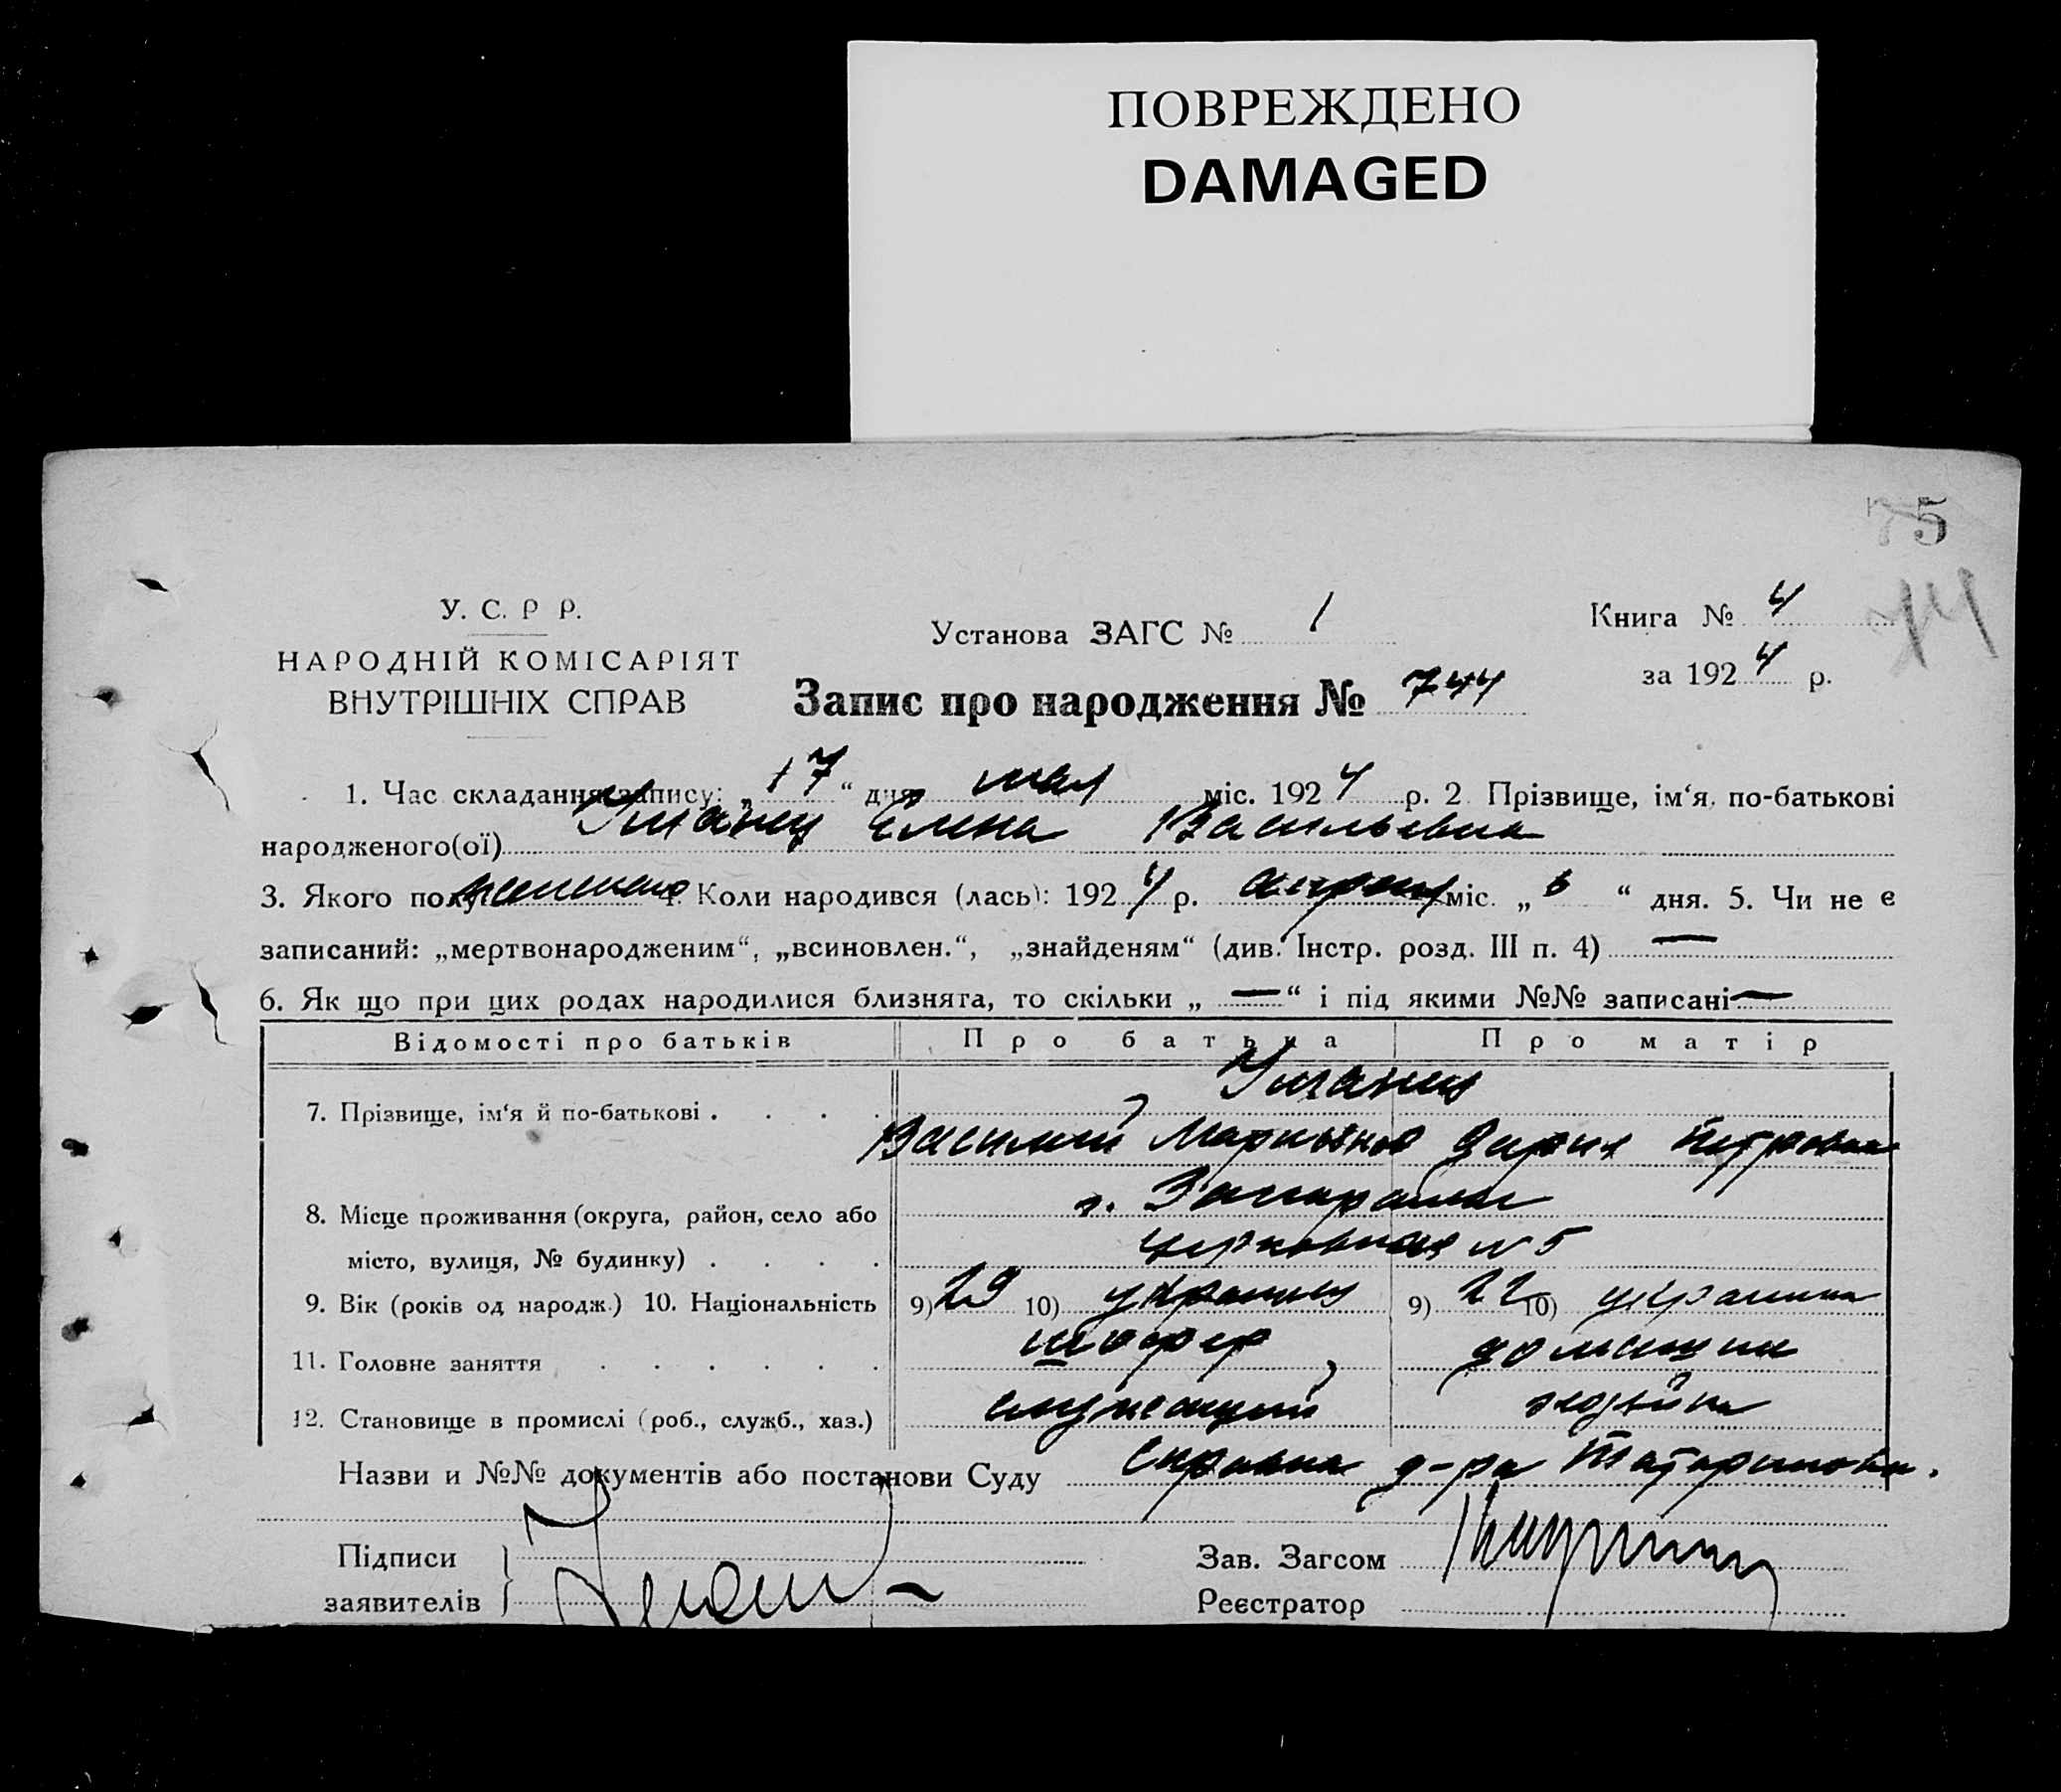 ПОВРЕЖДЕНО
DAMAGED
75
74
У. С. Р Р.
НАРОДНІЙ КОМІСАРІЯТ
ВНУТРІШНІХ СПРАВ
Установа ЗАГС № 1
Книга № 4
за 1924 р.
Запис про народження № 744
1. Час складання запису: „17“ дня мая міс. 1924 р. 2 Прізвище, ім‘я, по-батькові
народженого(ої) Уманец Елена Васильевна
3. Якого полу женского 4. Коли народився (лась): 1924 р. апреля міс. „6“ дня. 5. Чи не є
записаний: „мертвонародженим“, „всиновлен.“, „знайденям“ (див. Інстр. розд. III п. 4) —
6. Як що при цих родах народилися близнята, то скільки „—“ і під якими №№ записані —
Відомості про батьків Про батька Про матір
7. Прізвище, ім‘я й по-батькові . . . . Уманец
Василий Дария Петровна
8. Місце проживання (округа, район, село або г. Запорожье
місто, вулиця, № будинку) . . . . Церковная № 5
9. Вік (років од народж.) 10. Національність 9) 29 10) украинец 9) 22 10) украинка
11. Головне заняття . . . . . . шофер домашняя
12. Становище в промислі (роб., служб., хаз.) служащий хозяйка
Назви и №№ документів або постанови Суду Справка д-ра Татаринова.
Підписи
заявителів
Зав. Загсом
Реєстратор